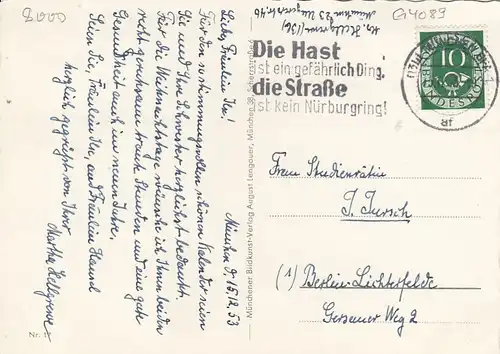 2000
G4089
München 23 Ungererstr. 46
Die Hast
ist ein gefährlich Ding,
die Straße
ist kein Nürburgring!
(13b) MÜNCHEN
af
10
DEUTSCHE BUNDESPOST
München, d. 15.12.53
Liebes Fräulein Ilse!
Für den so stimmungsvollen schönen Kalender seien
Sie und Ihre Schwester herzlichst bedankt.
Für die Weihnachtstage wünsche ich Ihnen beiden
recht geruhsam traute Stunden und eine gute
Gesundheit auch im neuen Jahre.
Seien Sie, Fräulein Ilse, und Fräulein Hansel
herzlich gegrüßt von Ihrer
Martha Hellgrewe
Münchener Bildkunst-Verlag August Lengauer, München
Nr.
Frau Studienrätin
J. Jursch
(1) Berlin-Lichterfelde
Gersauer Weg 2